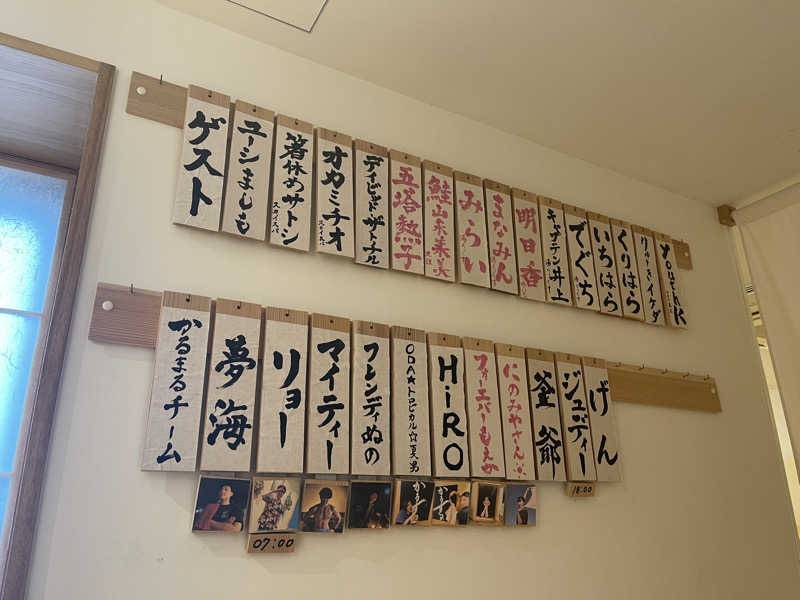 ゲスト
ユーシましも
箸休めサトシ
スカイスパ
オカミチオ
スカイスパ
デイビッドザトーナル
五塔熱子
鮭山未菜美
みらい
まなみん
明日香
キャプテン井上
でぐち
いちはら
くりはら
りゅうきイケダ
YouckK
かるまるチーム
夢海
リョー
マイティー
フレンディぬの
ODA☆トロピカル☆夏男
HiRO
フォーエバーもえか
にのみやさん
釜爺
ジュディー
げん
07:00
18:00